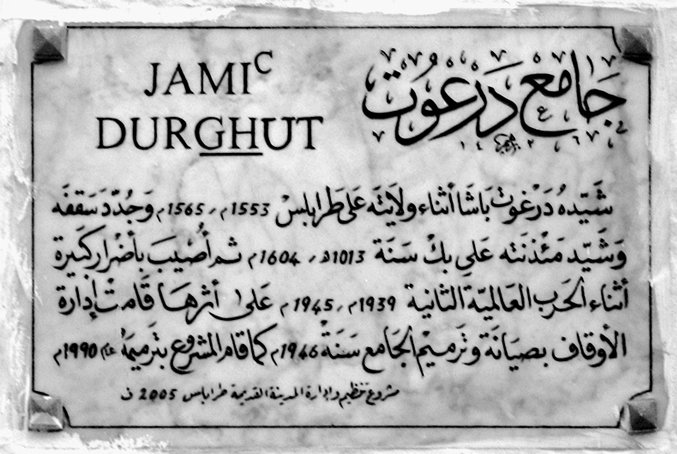 JAMIᶜ
DURGHUT
جَامع دَرْغوُت
شَيّدهُ دَرْغوت بَاشَا أثناء ولاَيته عَلى طَرابلسْ 1553م، 1565م وَجُدّدَ سَقفَه
وَشَيّد مَئْذنَته عَلي بكْ سَنَة 1013هـ، 1604م ثم أُصْيبَ بأضْرار كَبيرة
أثناء الحَرب العَالميّة الثانية 1939م، 1945م عَلىٰ أثرهَا قَامتْ إدارة
الأوقاف بصيَانَة وتَرميْم الجَامع سَنَة 1946م كما قام المشروع بتَرميمهُ عام 1990م
مشروع تنظيم وإدارة المدينة القديمة طرابلس 2005 ف